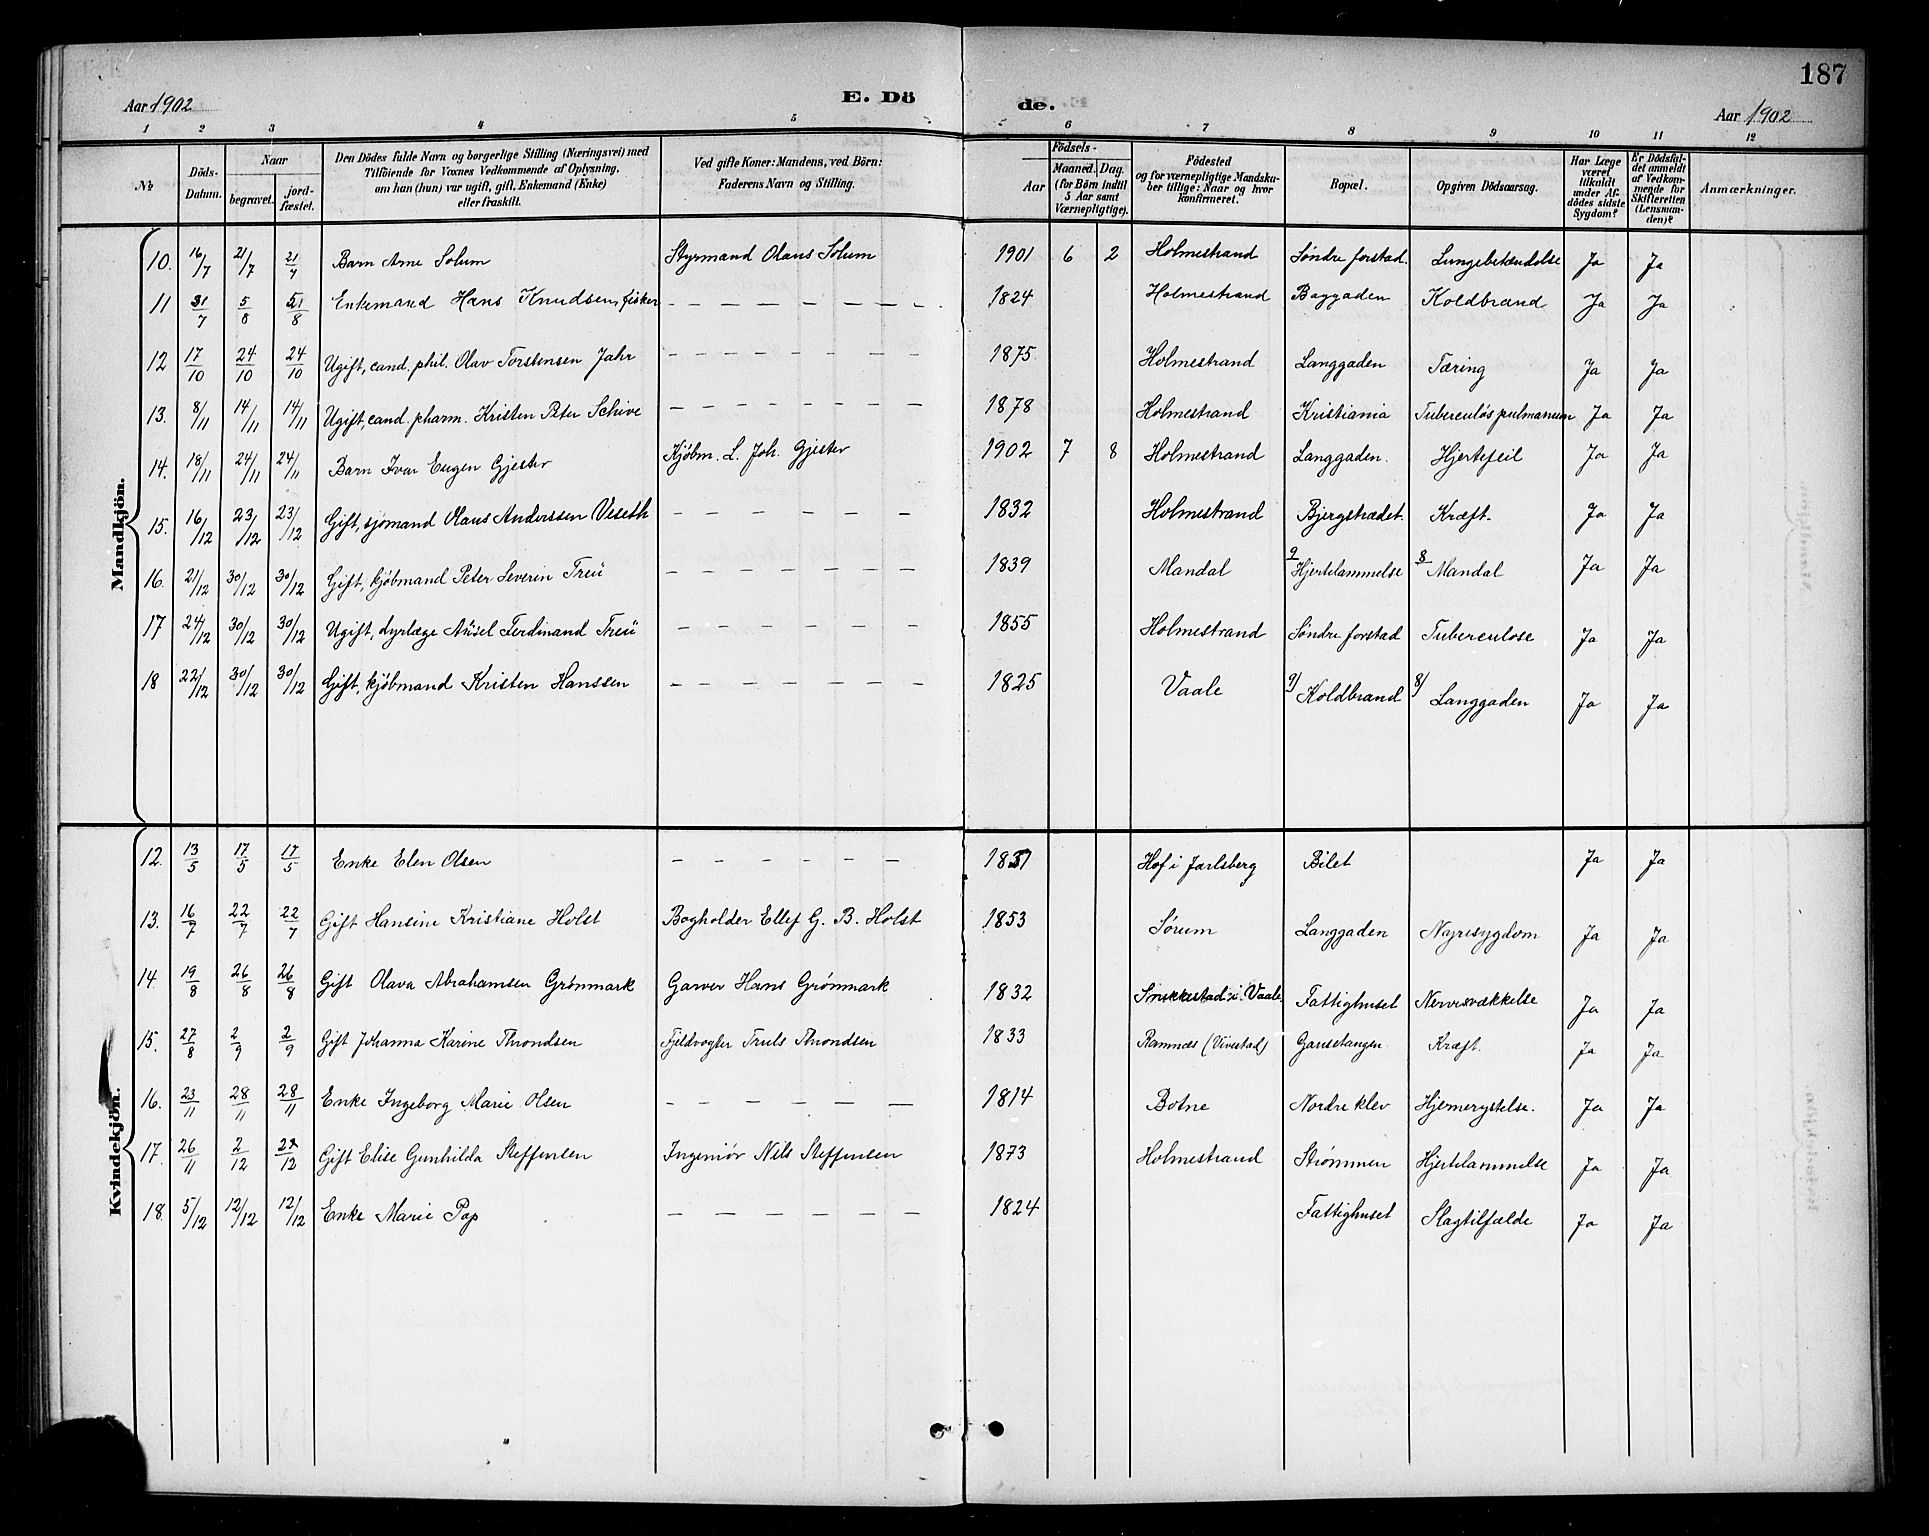 187
Aar 1902 E. Dö de. Aar 1902
1 2 3 4 5 6 7 8 9 10 11 12
No Döds-Datum. Naar begravet. jordfæstet. Den Dödes fulde Navn og borgerlige Stilling (Næringsvei) med Tilföiende for Voxnes Vedkommende af Oplysning, om han (hun) var ugift, gift, Enkemand (Enke) eller fraskilt. Ved gifte Koner: Mandens, ved Börn: Faderens Navn og Stilling. Födsels- Aar Maaned. Dag. (for Börn indtil 5 Aar samt Værnepligtige). Födested og for værnepligtige Mandskaber tillige: Naar og hvor konfirmeret. Bopæl. Opgiven Dödsaarsag. Har Læge været tilkaldt under Afdödes sidste Sygdom? Er Dödsfaldet anmeldt af Vedkommende for Skifteretten (Lensmanden)? Anmærkninger.
Mandkjön.
10. 16/7 21/7 21/7 Barn Arne Solum Styrmand Olaus Solum 1901 6 2 Holmestrand Søndre forstad. Lungebetændelse Ja Ja
11 31/7 5/8 5/8 Enkemand Hans Knudsen, fisker — — — — — — 1824 Holmestrand Baggaden Koldbrand Ja Ja
12 17/10 24/10 24/10 Ugift, cand. phil. Olav Torstensen Jahr — — — — — — 1875 Holmestrand Langgaden Tæring Ja Ja
13. 8/11 14/11 14/11 Ugift, cand. pharm. Kristen Peter Schive — — — — — — 1878 Holmestrand Kristiania Tuberculøs pulmanum Ja Ja
14. 18/11 24/11 24/11 Barn Ivar Eugen Gjester Kjøbm. L. Joh. Gjester 1902 7 8 Holmestrand Langgaden. Hjertefeil Ja Ja
15. 16/12 23/12 23/12 Gift, sjømand Olaus Anderssen Veseth — — — — — — 1832 Holmestrand Bjergstrædet. Kræft. Ja Ja
16. 21/12 30/12 30/12 Gift, kjøbmand Peter Severin Treu — — — — — — 1839 Mandal 9/ Hjertelammelse 8/ Mandal Ja Ja
17 24/12 30/12 30/12 Ugift, dyrlæge Ferdinand Treu — — — — — — 1855 Holmestrand Søndre forstad Tuberculose Ja Ja
18 22/12 30/12 30/12 Gift, kjøbmand Kristen Hanssen — — — — — — 1825 Vaale 9/ Koldbrand 8/ Langgaden Ja Ja
Kvindekjön.
12. 13/5 17/5 17/5 Enke Elen Olsen — — — — — — Hof i Jarlsberg Bilet Ja Ja
13. 16/7 22/7 22/7 Gift Hansine Kristiane Holst Bogholder Ellef G. B. Holst 1853 Sørum Langgaden Nyresygdom Ja Ja
14. 19/8 26/8 26/8 Gift Olava Abrahamsen Grønmark Garver Hans Grønmark 1832 Snekkestad i Vaale Fattighuset Nervesvækkelse Ja Ja
15. 27/8 2/9 2/9 Gift Johanna Karine Throndsen Fjeldvogter Truls Throndsen 1833 Ramnæs (Vivestad) Gausetangen Kræft. Ja Ja
16. 23/11 28/11 28/11 Enke Ingeborg Marie Olsen — — — — — — 1814 Botne Nordre klev Hjernerystelse. Ja Ja
17. 26/11 2/12 2/12 Gift Elise Gunhilda Steffensen Ingeniør Nils Steffensen 1873 Holmestrand Strømmen Hjertelammelse Ja Ja
18. 5/12 12/12 12/12 Enke Marie Pap — — — — — — 1824 Fattighuset Slagtilfælde Ja Ja